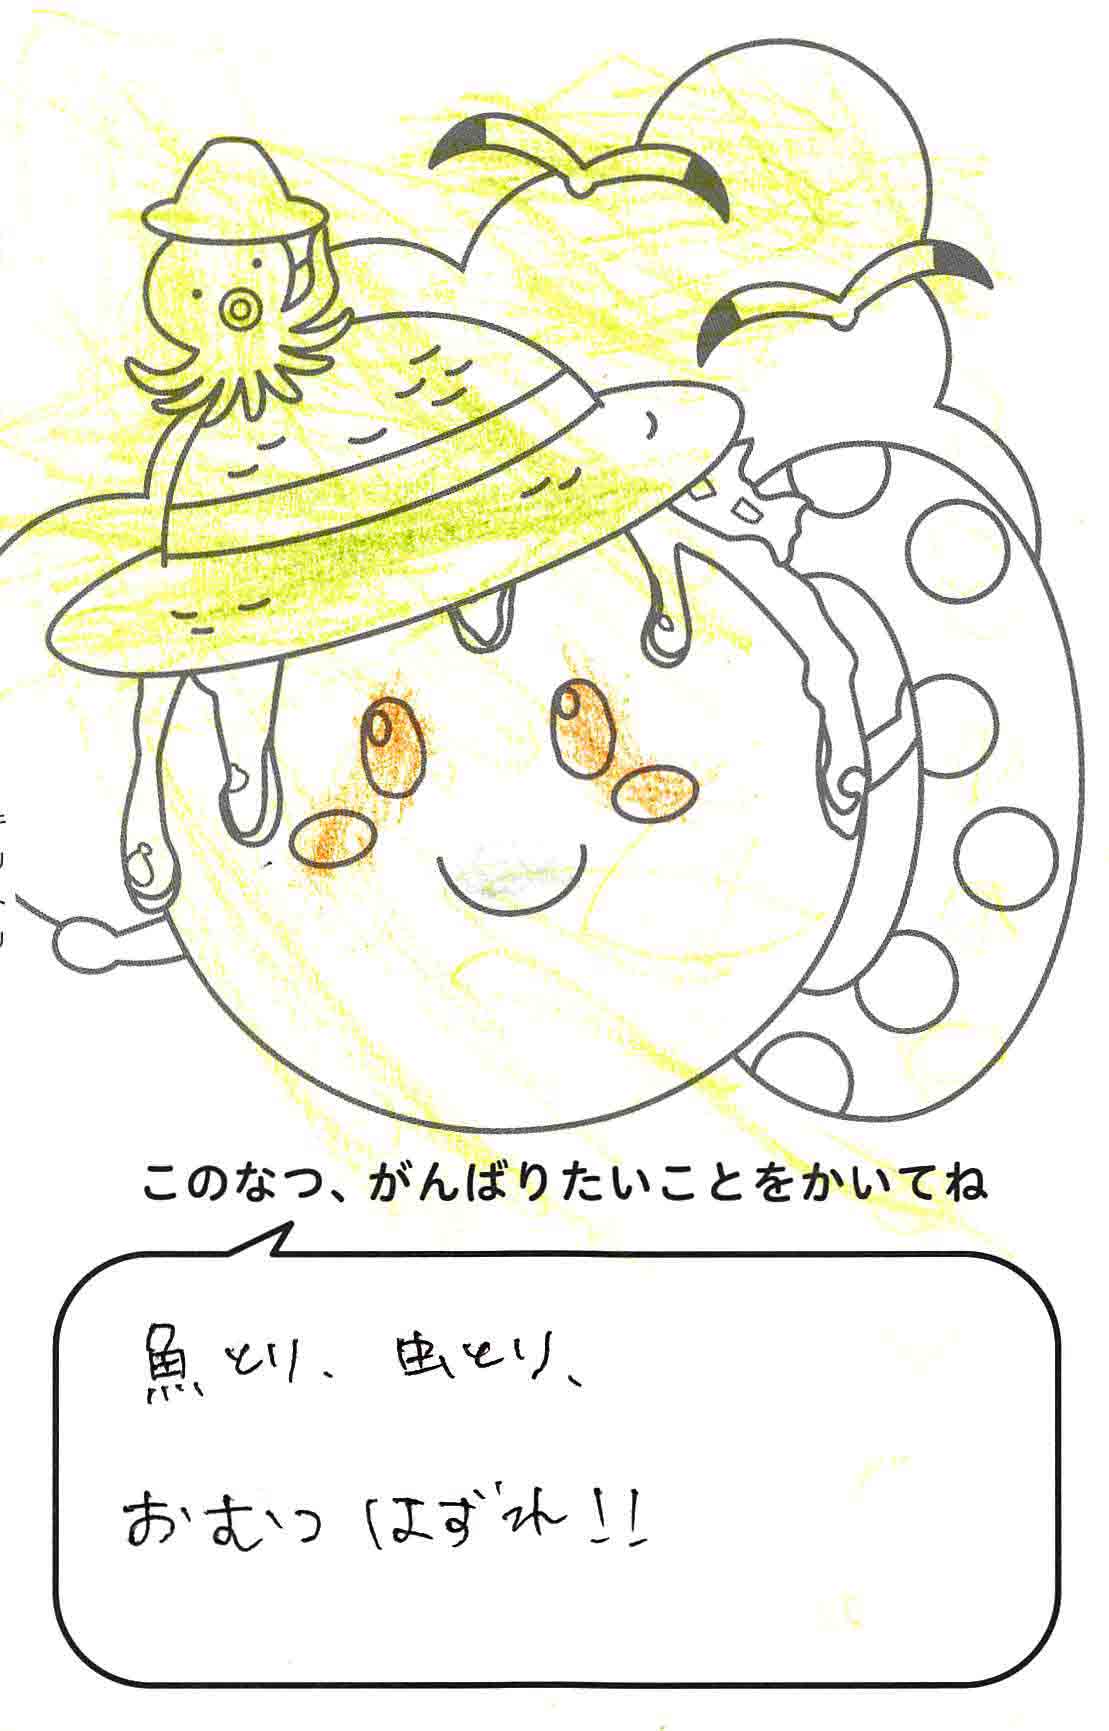 このなつ、がんばりたいことをかいてね
魚とり、虫とり、
おむつはずれ!!